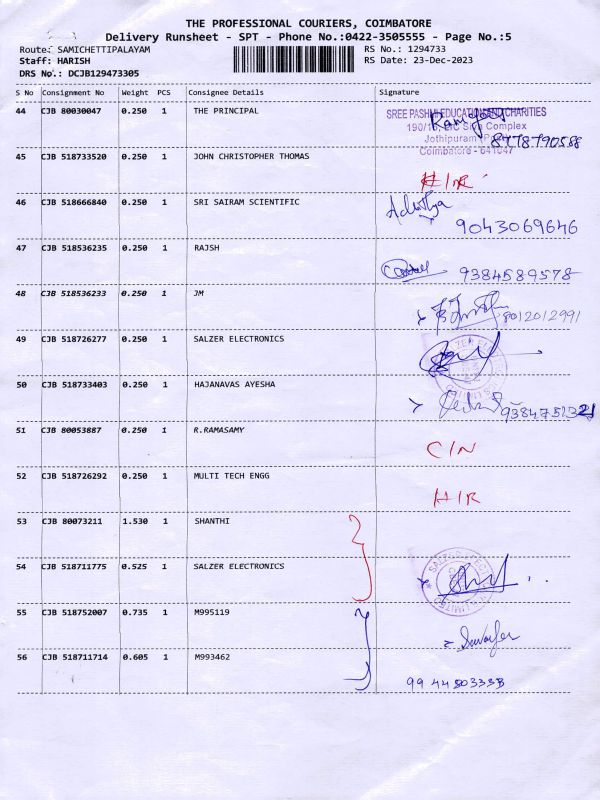 THE PROFESSIONAL COURIERS, COIMBATORE
Delivery Runsheet - SPT - Phone No.:0422-3505555 - Page No.:5
Route: SAMICHETTIPALAYAM RS No.: 1294733
Staff: HARISH RS Date: 23-Dec-2023
DRS No.: DCJB129473305
S No Consignment No Weight PCS Consignee Details Signature
44 CJB 80030047 0.250 1 THE PRINCIPAL
SREE PASHMI EDUCATION AND CHARITIES
Complex
8778790588
Coimbatore - 641047
45 CJB 518733520 0.250 1 JOHN CHRISTOPHER THOMAS
H/R
46 CJB 518666840 0.250 1 SRI SAIRAM SCIENTIFIC
9043069646
47 CJB 518536235 0.250 1 RAJSH
9384589578
48 CJB 518536233 0.250 1 JM
8012012991
49 CJB 518726277 0.250 1 SALZER ELECTRONICS
50 CJB 518733403 0.250 1 HAJANAVAS AYESHA
51 CJB 80053887 0.250 1 R.RAMASAMY
C/N
52 CJB 518726292 0.250 1 MULTI TECH ENGG
H/R
53 CJB 80073211 1.530 1 SHANTHI
54 CJB 518711775 0.525 1 SALZER ELECTRONICS
55 CJB 518752007 0.735 1 M995119
56 CJB 518711714 0.605 1 M993462
99 44503333